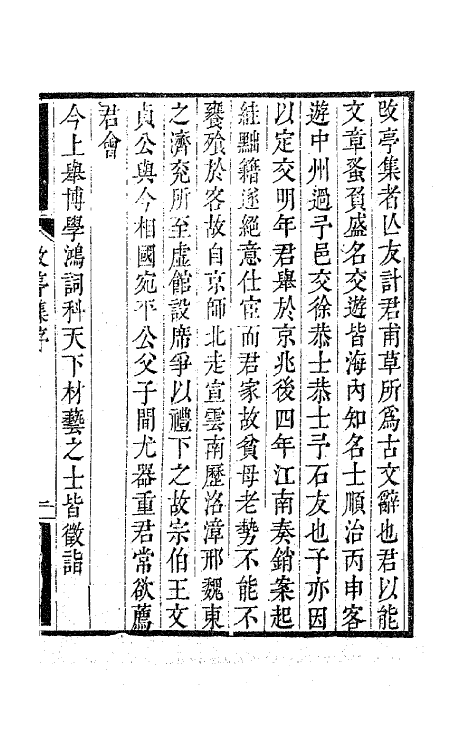 改亭集者亾友計君甫草所爲古文辭也君以能
文章蚤負盛名交遊皆海內知名士順治丙申客
遊中州過予邑交徐恭士恭士予石友也予亦因
以定交明年君舉於京兆後四年江南奏銷案起
絓黜籍遂絕意仕宦而君家故貧母老勢不能不
饔飱於客故自京師北走宣雲南歷洛漳邢魏東
之濟兗所至虛館設席爭以禮下之故宗伯王文
貞公與今相國宛平公父子間尤器重君常欲薦
君會
今上舉博學鴻詞科天下材藝之士皆徵詣
改亭集序
一